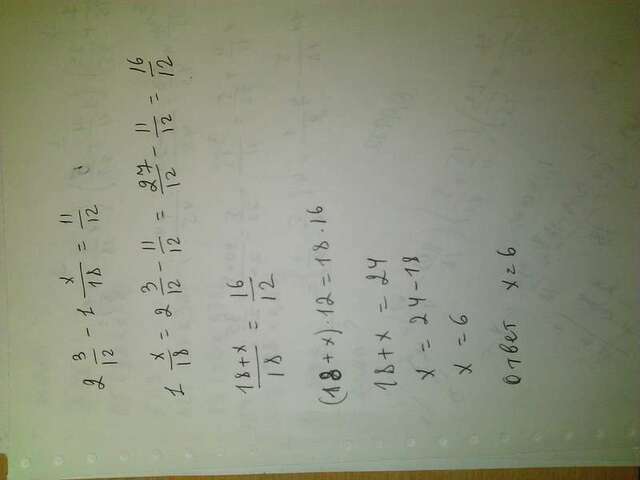 2 3/12 - 1 x/18 = 11/12
1 x/18 = 2 3/12 - 11/12 = 27/12 - 11/12 = 16/12
18+x/18 = 16/12
(18+x)·12=18·16
18+x = 24
x = 24-18
x = 6
ответ x=6